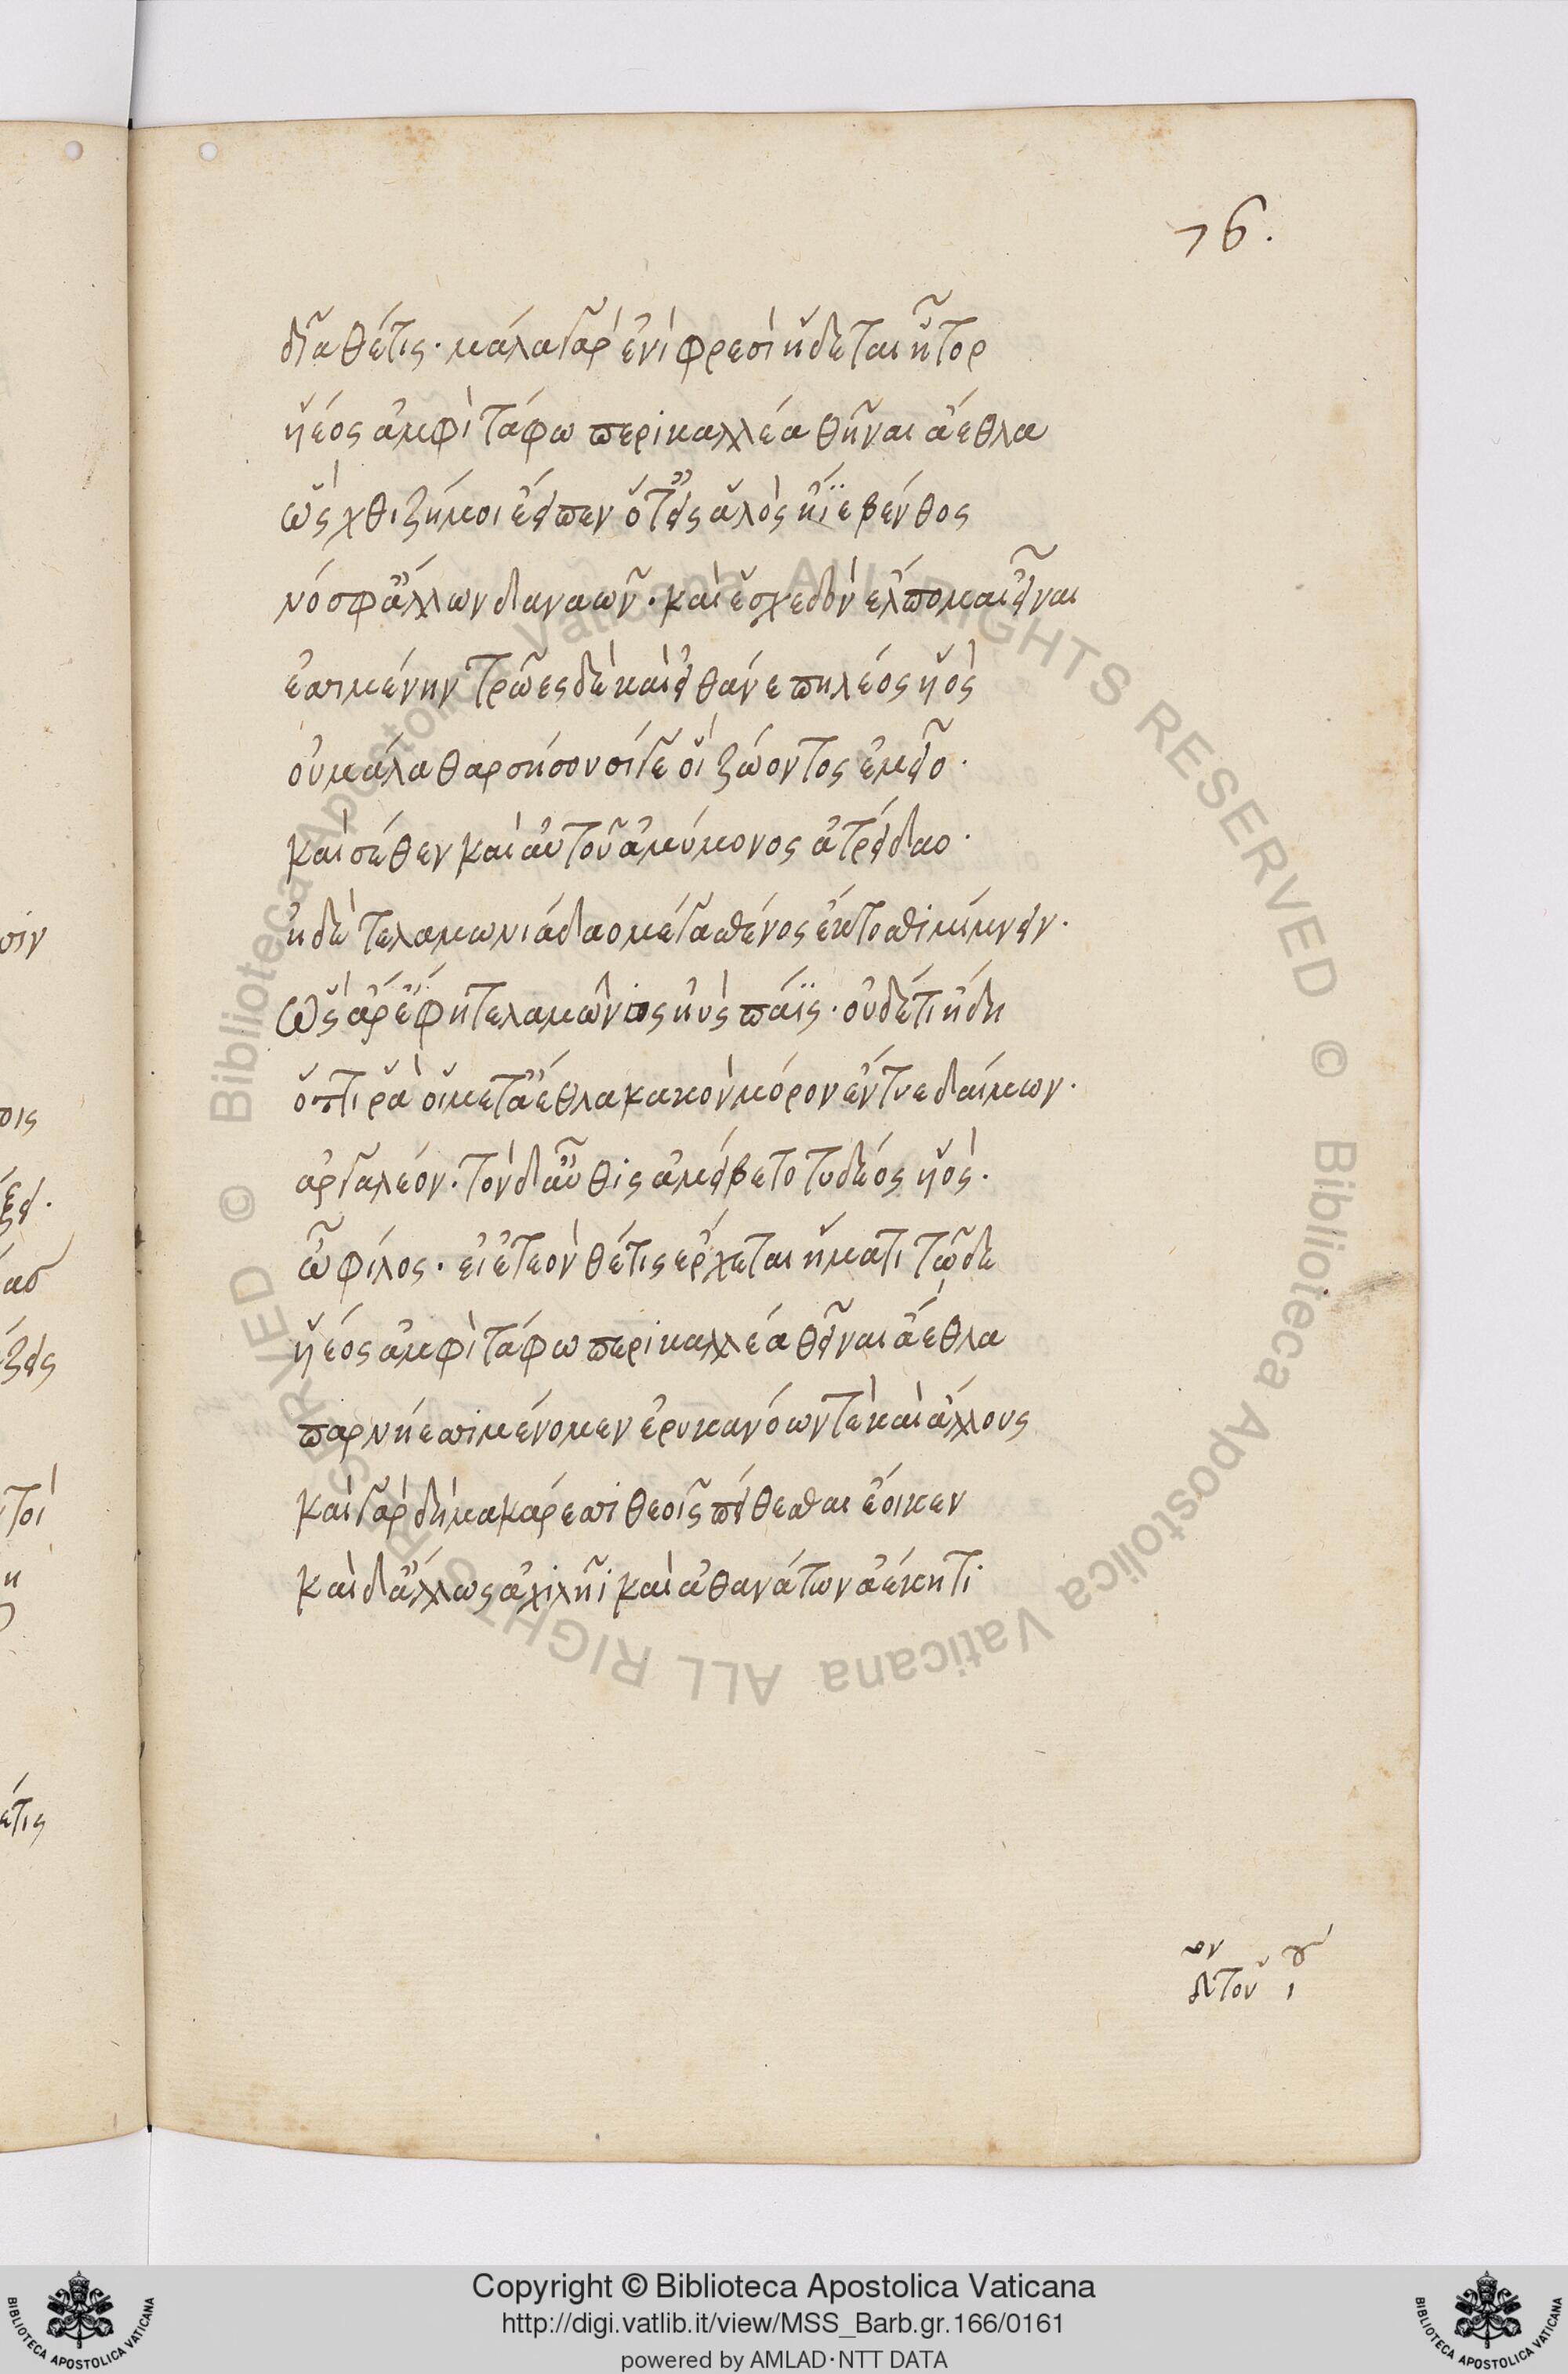 76.
δῖα θέτις· μάλα γὰρ ἐνὶ φρεσὶ ἥδεται ἦτορ
υἵεος ἀμφὶ τάφω περικαλλέα θῆναι ἄεθλα
ὥς χθιζή μοι ἔειπεν ὅτ' εἰς ἁλὸς ἤϊε βένθος
νόσφ' ἄλλων δαναῶν· καί ἑ σχεδὸν ἔλπομαι εἶναι
ἐσσυμένην τρῶες δὲ καὶ εἰ θάνε πηλέος υἱὸς
οὐ μάλα θαρσήσουσί γε οἱ ζώοντος ἐμεῖο·
καὶ σέθεν καὶ αὐτοῦ ἀμύμονος ἀτρείδαο·
ἠδὲ τελαμωνιάδαο μέγα σθένος ἔκτοθι μίμνειν·
ὣς ἄρ' ἔφη τελαμώνιος ἠὺς πάϊς· οὐδέ τι ἤδη
ὅττι ῥά οἱ μετ' ἄεθλα κακὸν μόρον ἔντυε δαίμων·
ἀργαλέον· τὸν δ' αὖθις ἀμείβετο τυδέος υἱὸς·
ὦ φίλος· εἰ ἐτεὸν θέτις ἔρχεται ἤματι τῶδε
υἵεος ἀμφὶ τάφω περικαλλέα θεῖναι ἄεθλα
παρ νήεσσι μένομεν ἐρυκανόωντε καὶ ἄλλους
καὶ γὰρ δὴ μακάρεσσι θεοῖς πείθεσθαι ἔοικεν
καὶ δ' ἄλλως ἀχιλῆι καὶ ἀθανάτων ἀέκητι
Copyright © Biblioteca Apostolica Vaticana
http://digi.vatlib.it/view/MSS_Barb.gr.166/0161
powered by AMLAD·NTT DATA